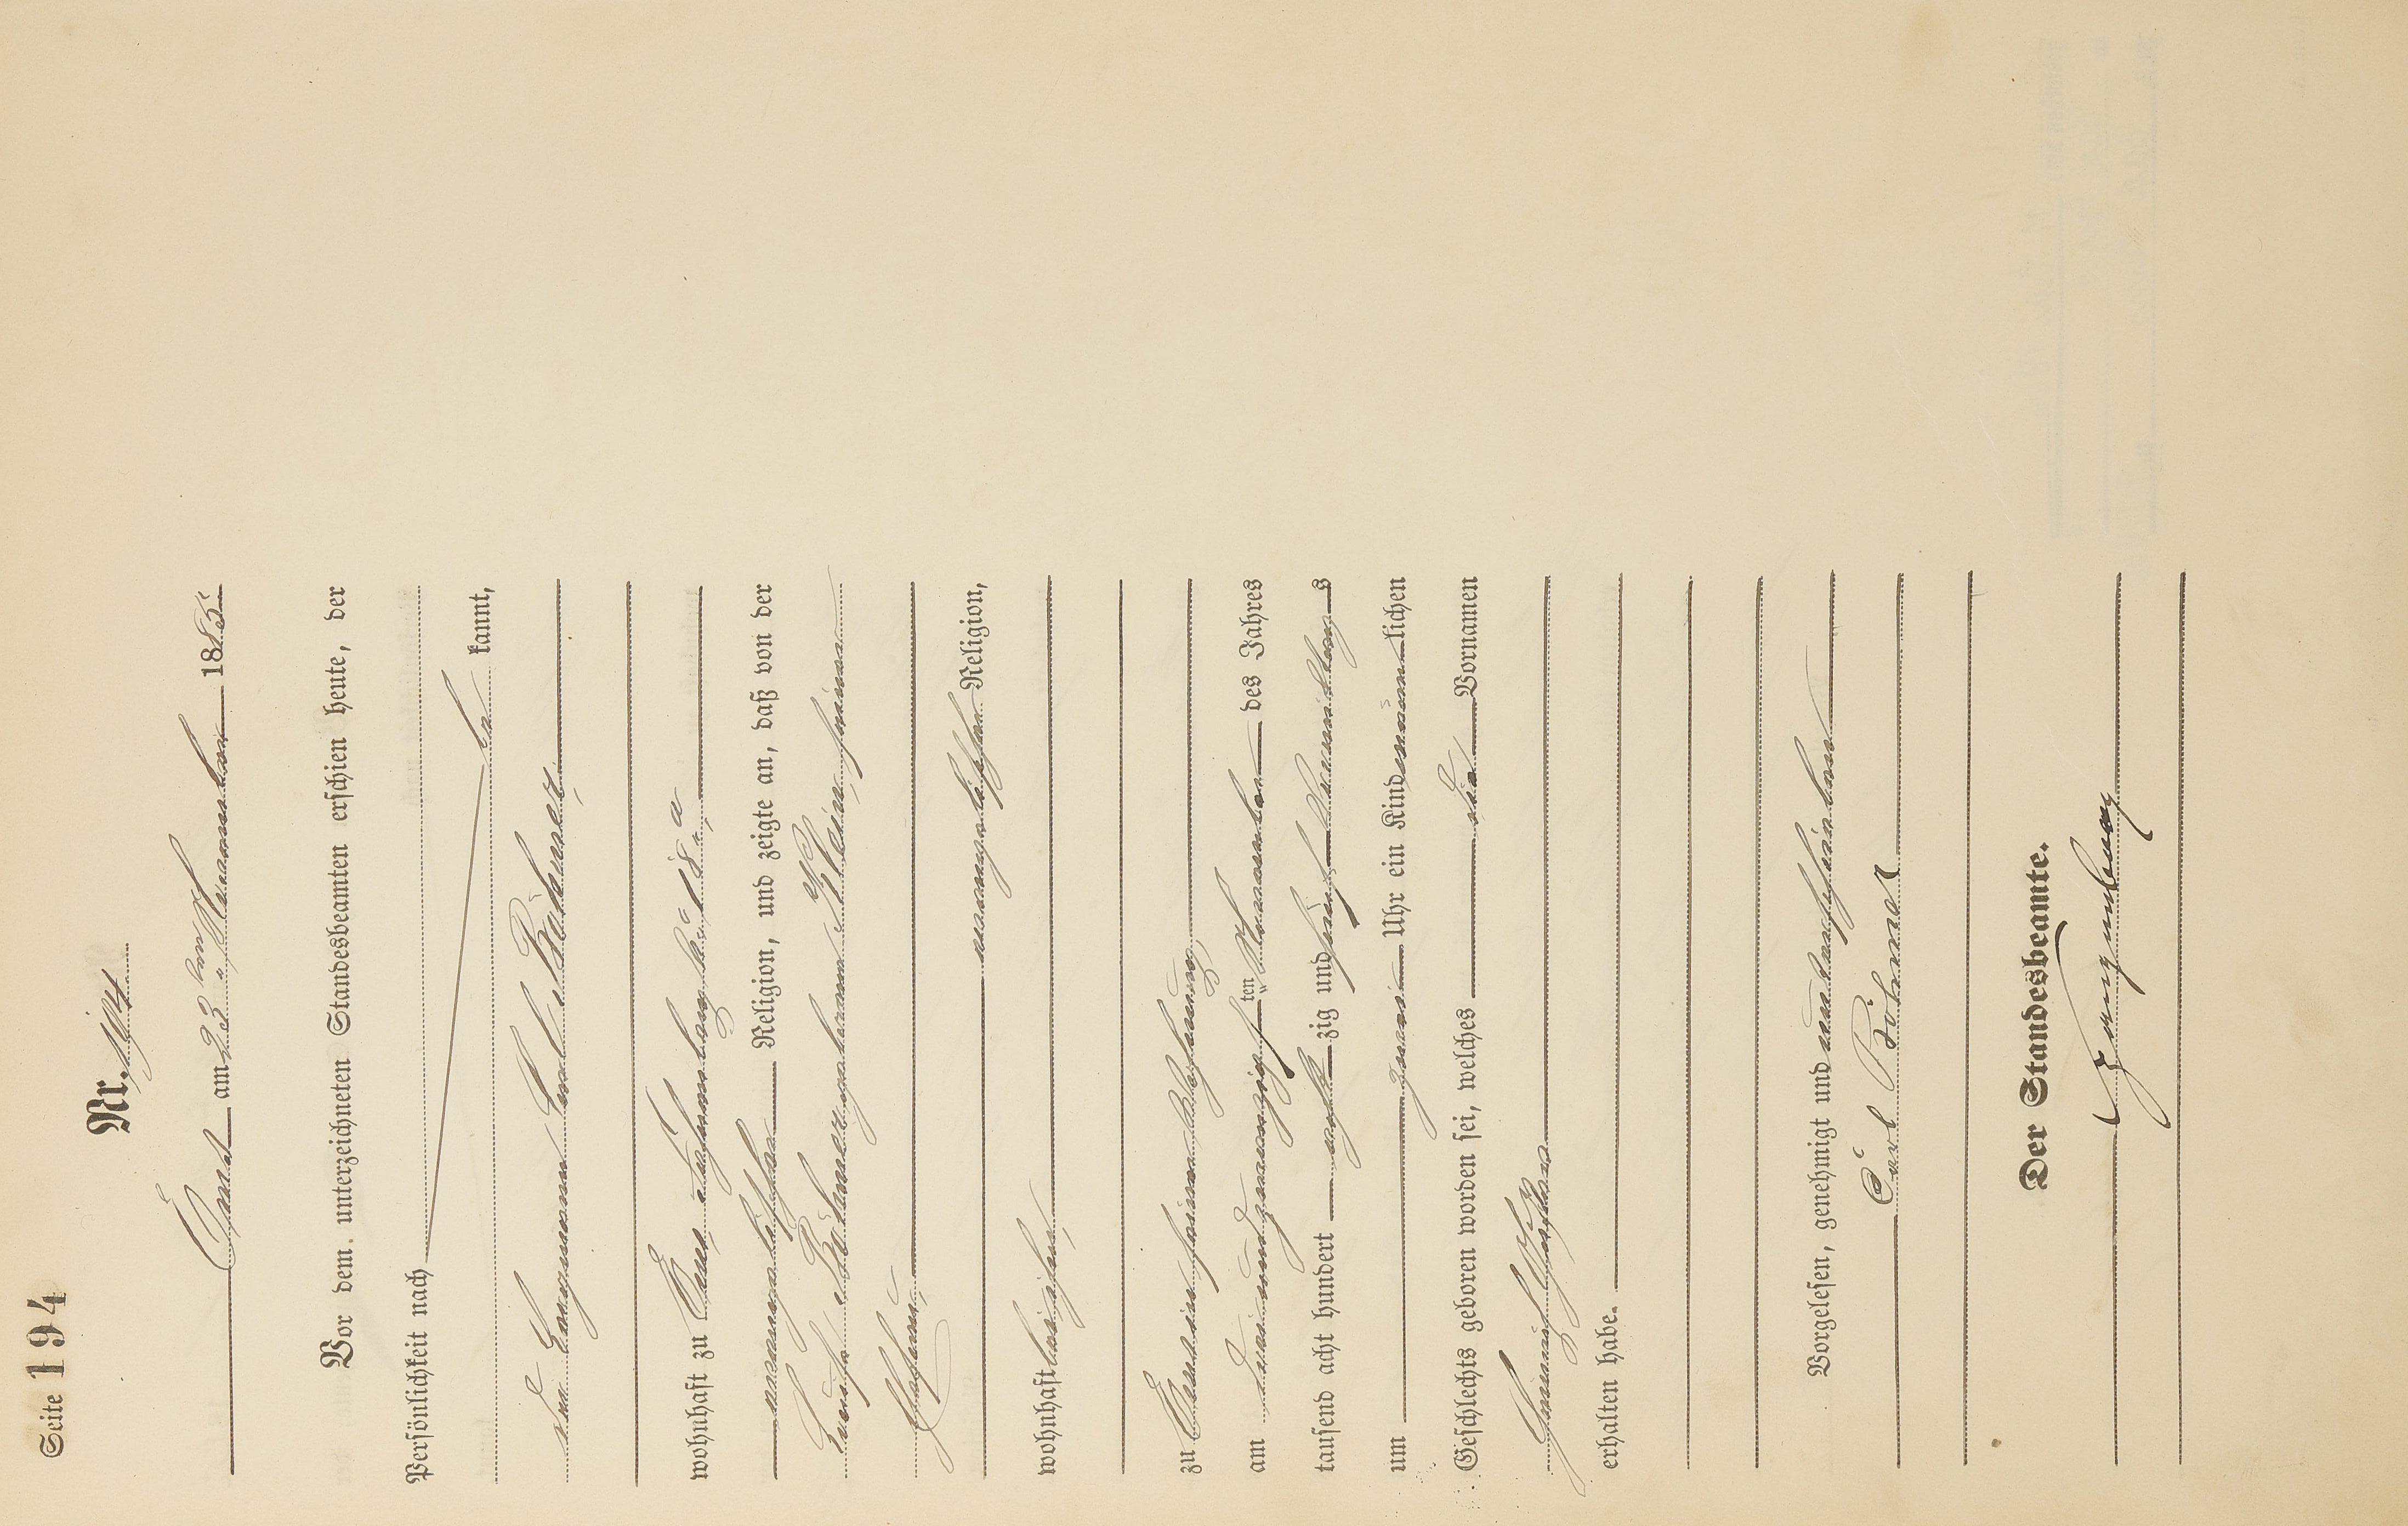 Seite 194
Nr. 194
am 23ten November 1885.
Vor dem unterzeichneten Standesbeamten erschien heute, der
Persönlichkeit nach
be kannt,
der Bergmann Carl Böhmer,
wohnhaft zu No 18a
evangelischer Religion, und zeigte an, daß von der
Böhmer geborenen Klein seiner
Ehefrau,
evangelischer Religion,
wohnhaft bei ihm,
zu in seiner Wohnung,
am drei und zwanzigsten November des Jahres
tausend acht hundert acht zig und fünf Vormittags
um zwei Uhr ein Kind männlichen
Geschlechts geboren worden sei, welches die Vornamen
Heinrich
erhalten habe.
Vorgelesen, genehmigt und unterschrieben
Carl Böhmer
Der Standesbeamte.